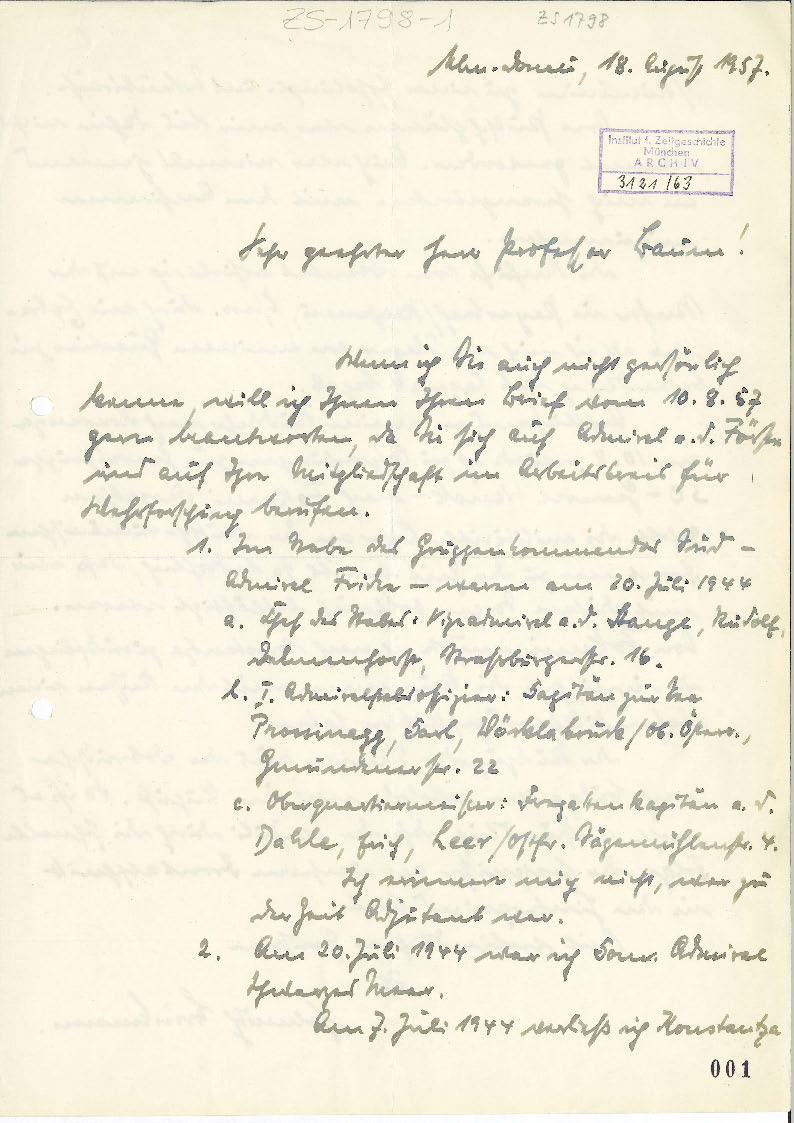 ZS-1798-1
ZS 1798
Ulm-Donau, 18. August 1957.
Institut f. Zeitgeschichte
München
ARCHIV
3121/63
Sehr geehrter Herr Professor Baum!
Wenn ich Sie auch nicht persönlich
kenne, will ich Ihnen Ihren Brief vom 10.8.57
gern beantworten, da Sie sich auf Admiral a.d. Förste
und auf Ihre Mitgliedschaft im Arbeitskreis für
Wehrforschung berufen.
1. Im Stabe des Gruppenkommandos Süd –
Admiral Fricke – waren am 20. Juli 1944
a. Chef des Stabes: Vizeadmiral a.d. Stange, Rudolf,
Delmenhorst, Strassburgerstr. 16.
b. I. Admiralstabsoffizier: Kapitän zur See
Prossinagg, Karl, Vöcklabruck/Ob. Österr.,
Gmundenerstr. 22
c. Oberquartiermeister: Fregattenkapitän a.d.
Dahle, Erich, Leer/Ostfr. Sägemühlenstr. 4.
Ich erinnere mich nicht, wer zu
der Zeit Adjutant war.
2. Am 20. Juli 1944 war ich Komm. Admiral
Schwarzes Meer.
Am 7. Juli 1944 verließ ich Konstantza
001